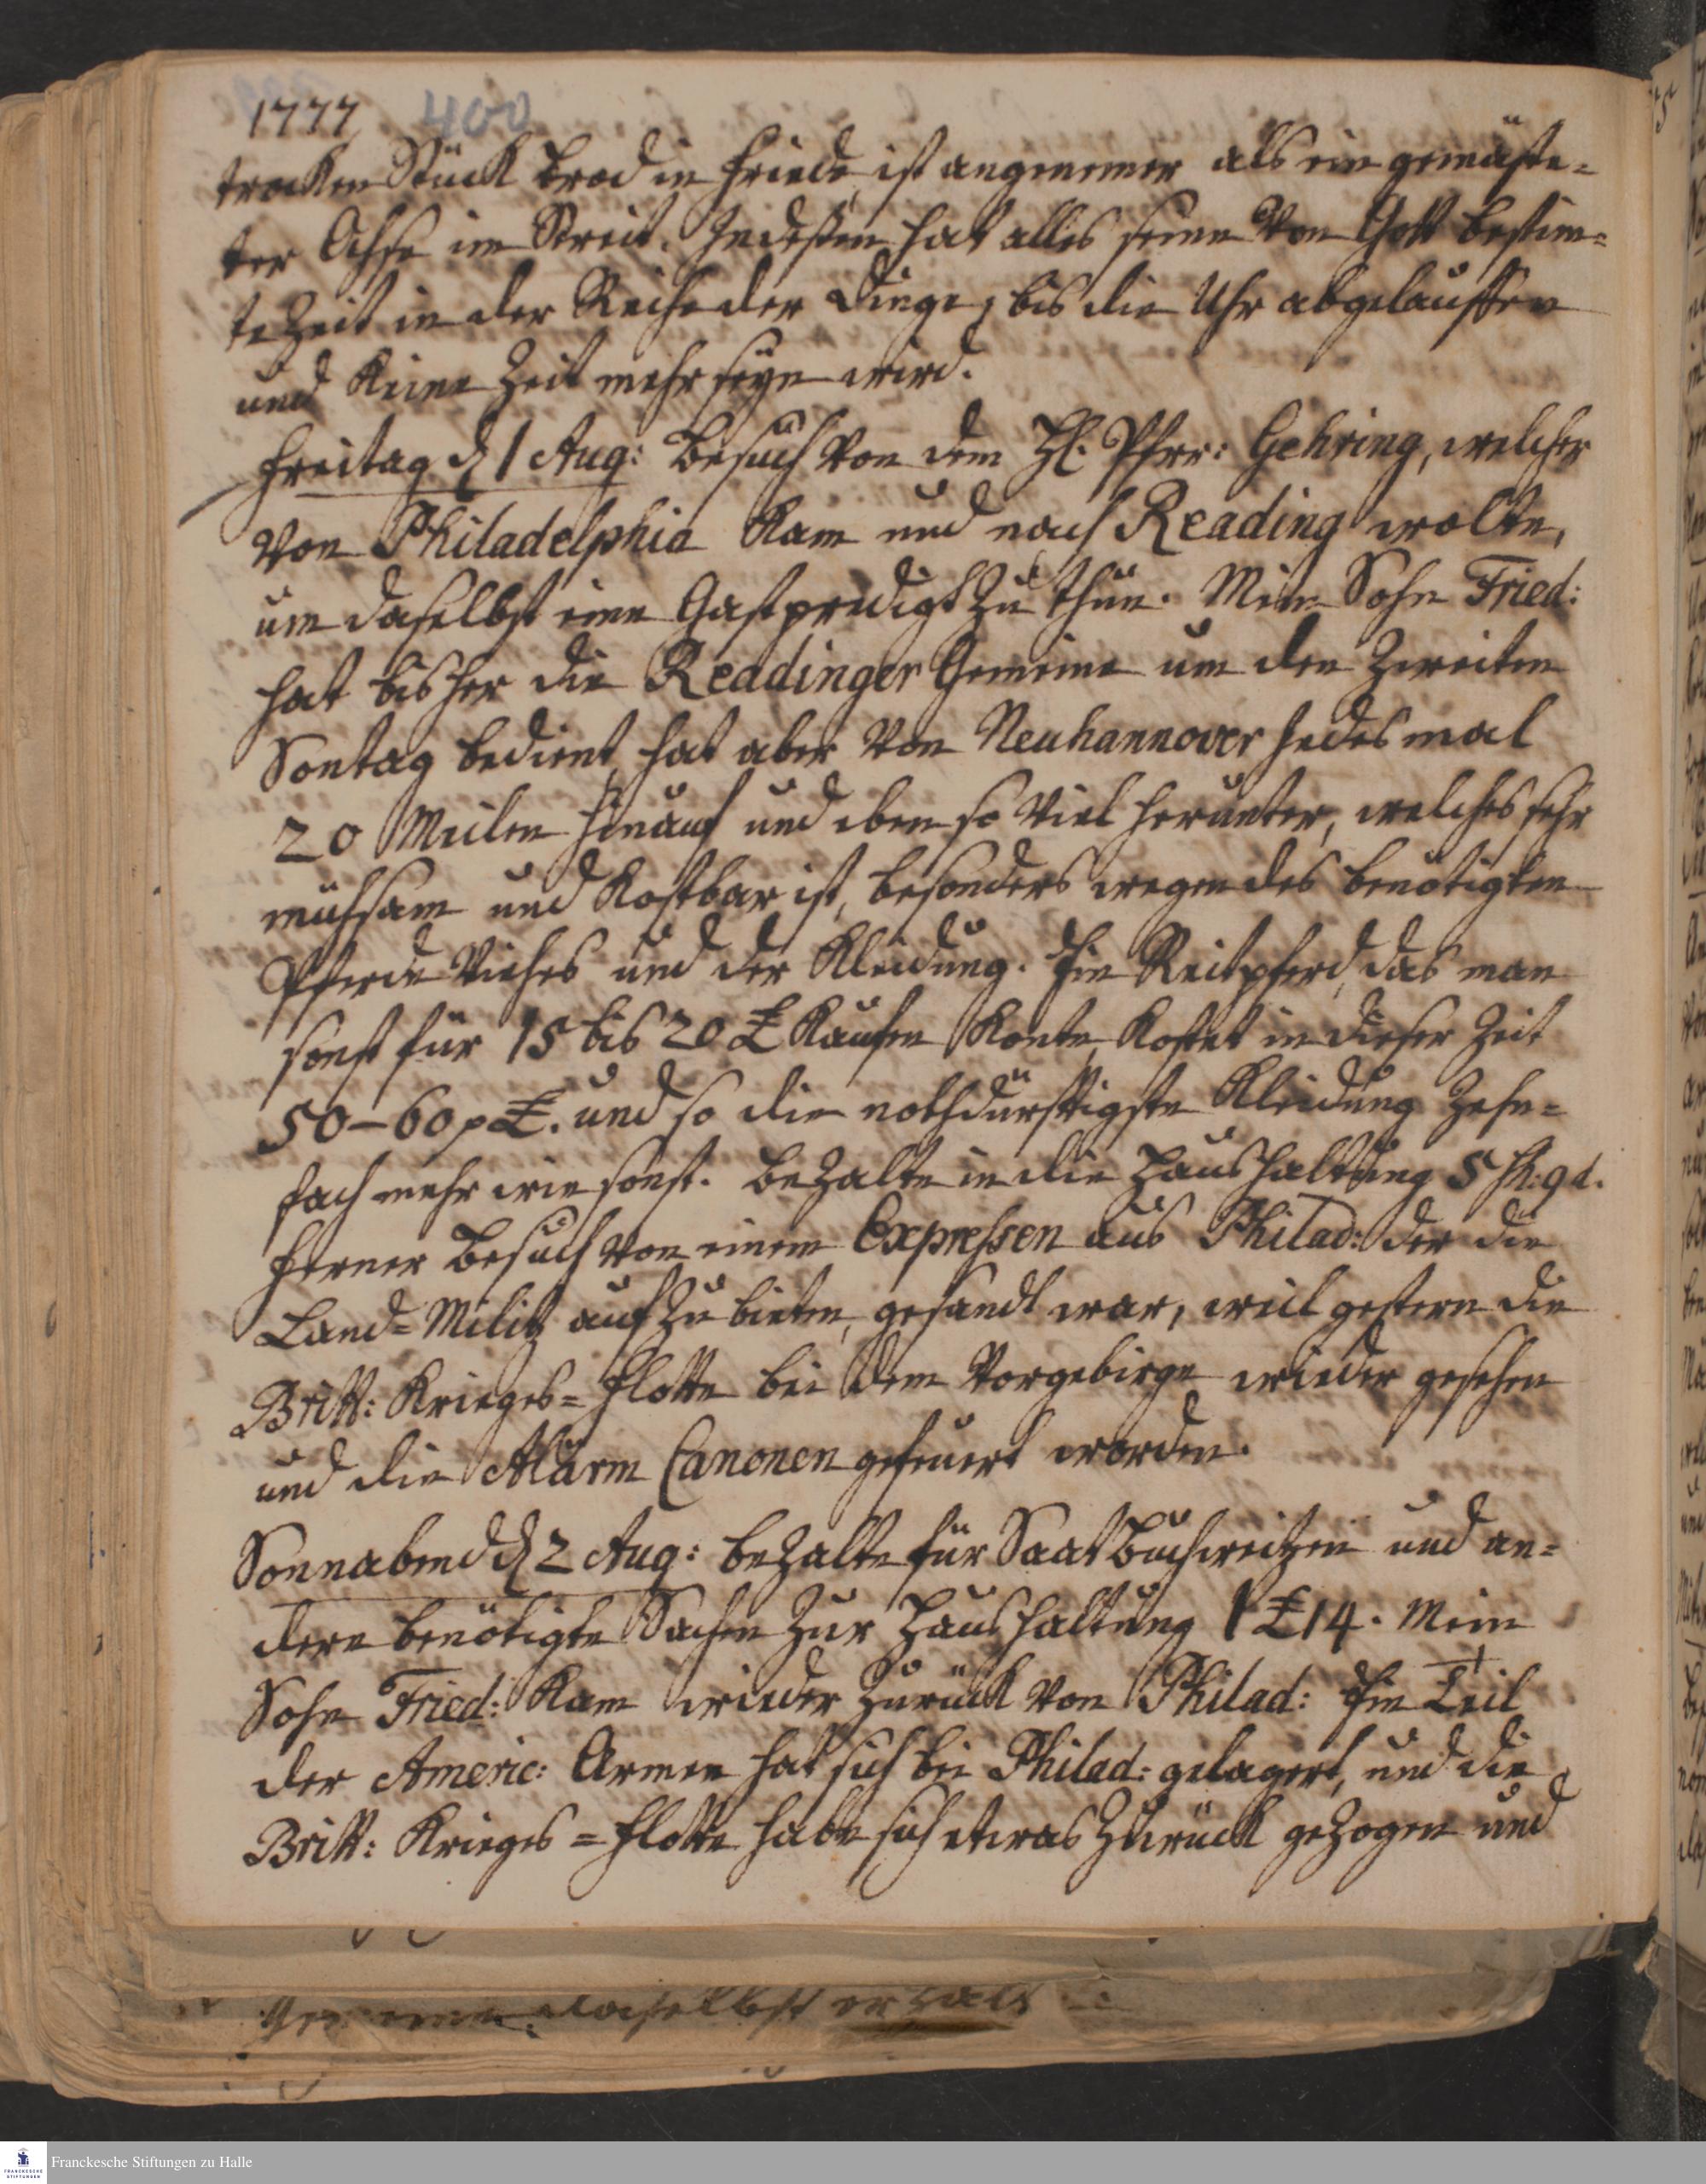 1777 400
trocken Stück Brod in Friede, ist angenemer als ein gemäste-
ter Ochse im Streit. Indeßen hat alles seine von Gott bestim-
te Zeit in der Reihe der Dinge, bis die Uhr abgelauffen
und keine Zeit mehr seyn wird.
Freitag d 1 Aug: Besuch von dem H. Pfrr: Gehring, welcher
von Philadelphia kam und nach Reading wolte,
um daselbst eine Gastpredigt zu thun. Mein Sohn Fried:
hat bisher die Readinger Gemeine um den zweiten
Sontag bedient, hat aber von Neuhannover jedesmal
20 Meilen hinauf und eben so viel herunter, welches sehr
mühsam und kostbar ist, besonders wegen des benötigten
Pferde Viehes und der Kleidung. Ein Reitpferd, das man
sonst für 15 bis 20 £ kaufen konte, kostet in dieser Zeit
50-60 p £. und so die nothdürftigste Kleidung zehn-
fach mehr wie sonst. Bezalte in die Haushaltung 5 sh. 9 d.
Ferner Besuch von einem Expressen aus Philad: der die
Land-Militz aufzubieten, gesandt war, weil gestern die
Britt: Krieges-Flotte bei dem Vorgebirge wieder gesehen
und die Alarm Canonen gefeuert worden.
Sonnabend d 2 Aug: bezalte für Saat Buchweitzen und an-
dere benötigte Sachen zur Haushaltung 1 £ 14. Mein
Sohn Fried: kam wieder zurück von Philad: Ein Teil
der Americ: Armee hat sich bei Philad: gelagert, und die
Britt: Krieges-Flotte habe sich etwas zurück gezogen und
daselbst
Franckesche Stiftungen zu Halle
FRANCKESCHE
STIFTUNGEN